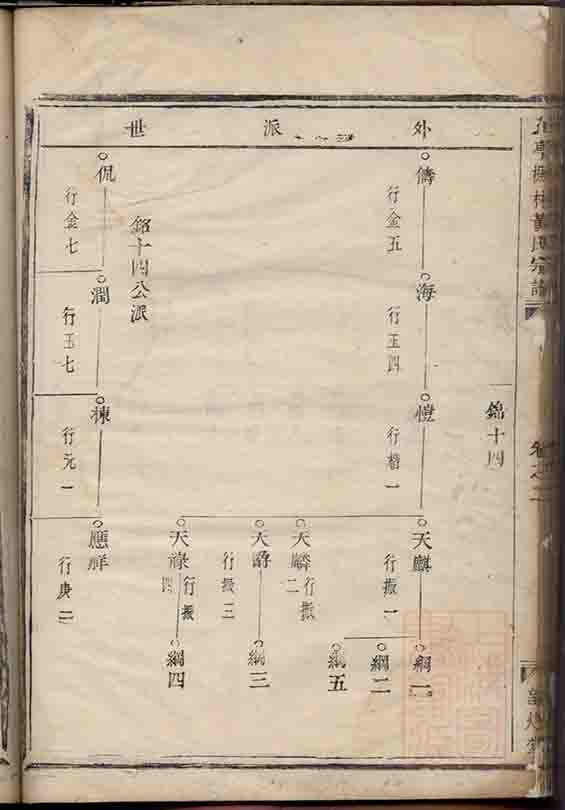 外派世
錦十四
儔
行金五
海
行玉四
愷
行楷一
天麒
行振一
綱一
綱二
綱五
天麟
行振二
天爵
行振三
綱三
天祿
行振四
綱四
銘十四公派
侃
行金七
潤
行玉七
棟
行元一
應祥
行庚二
黃氏宗譜
卷之二